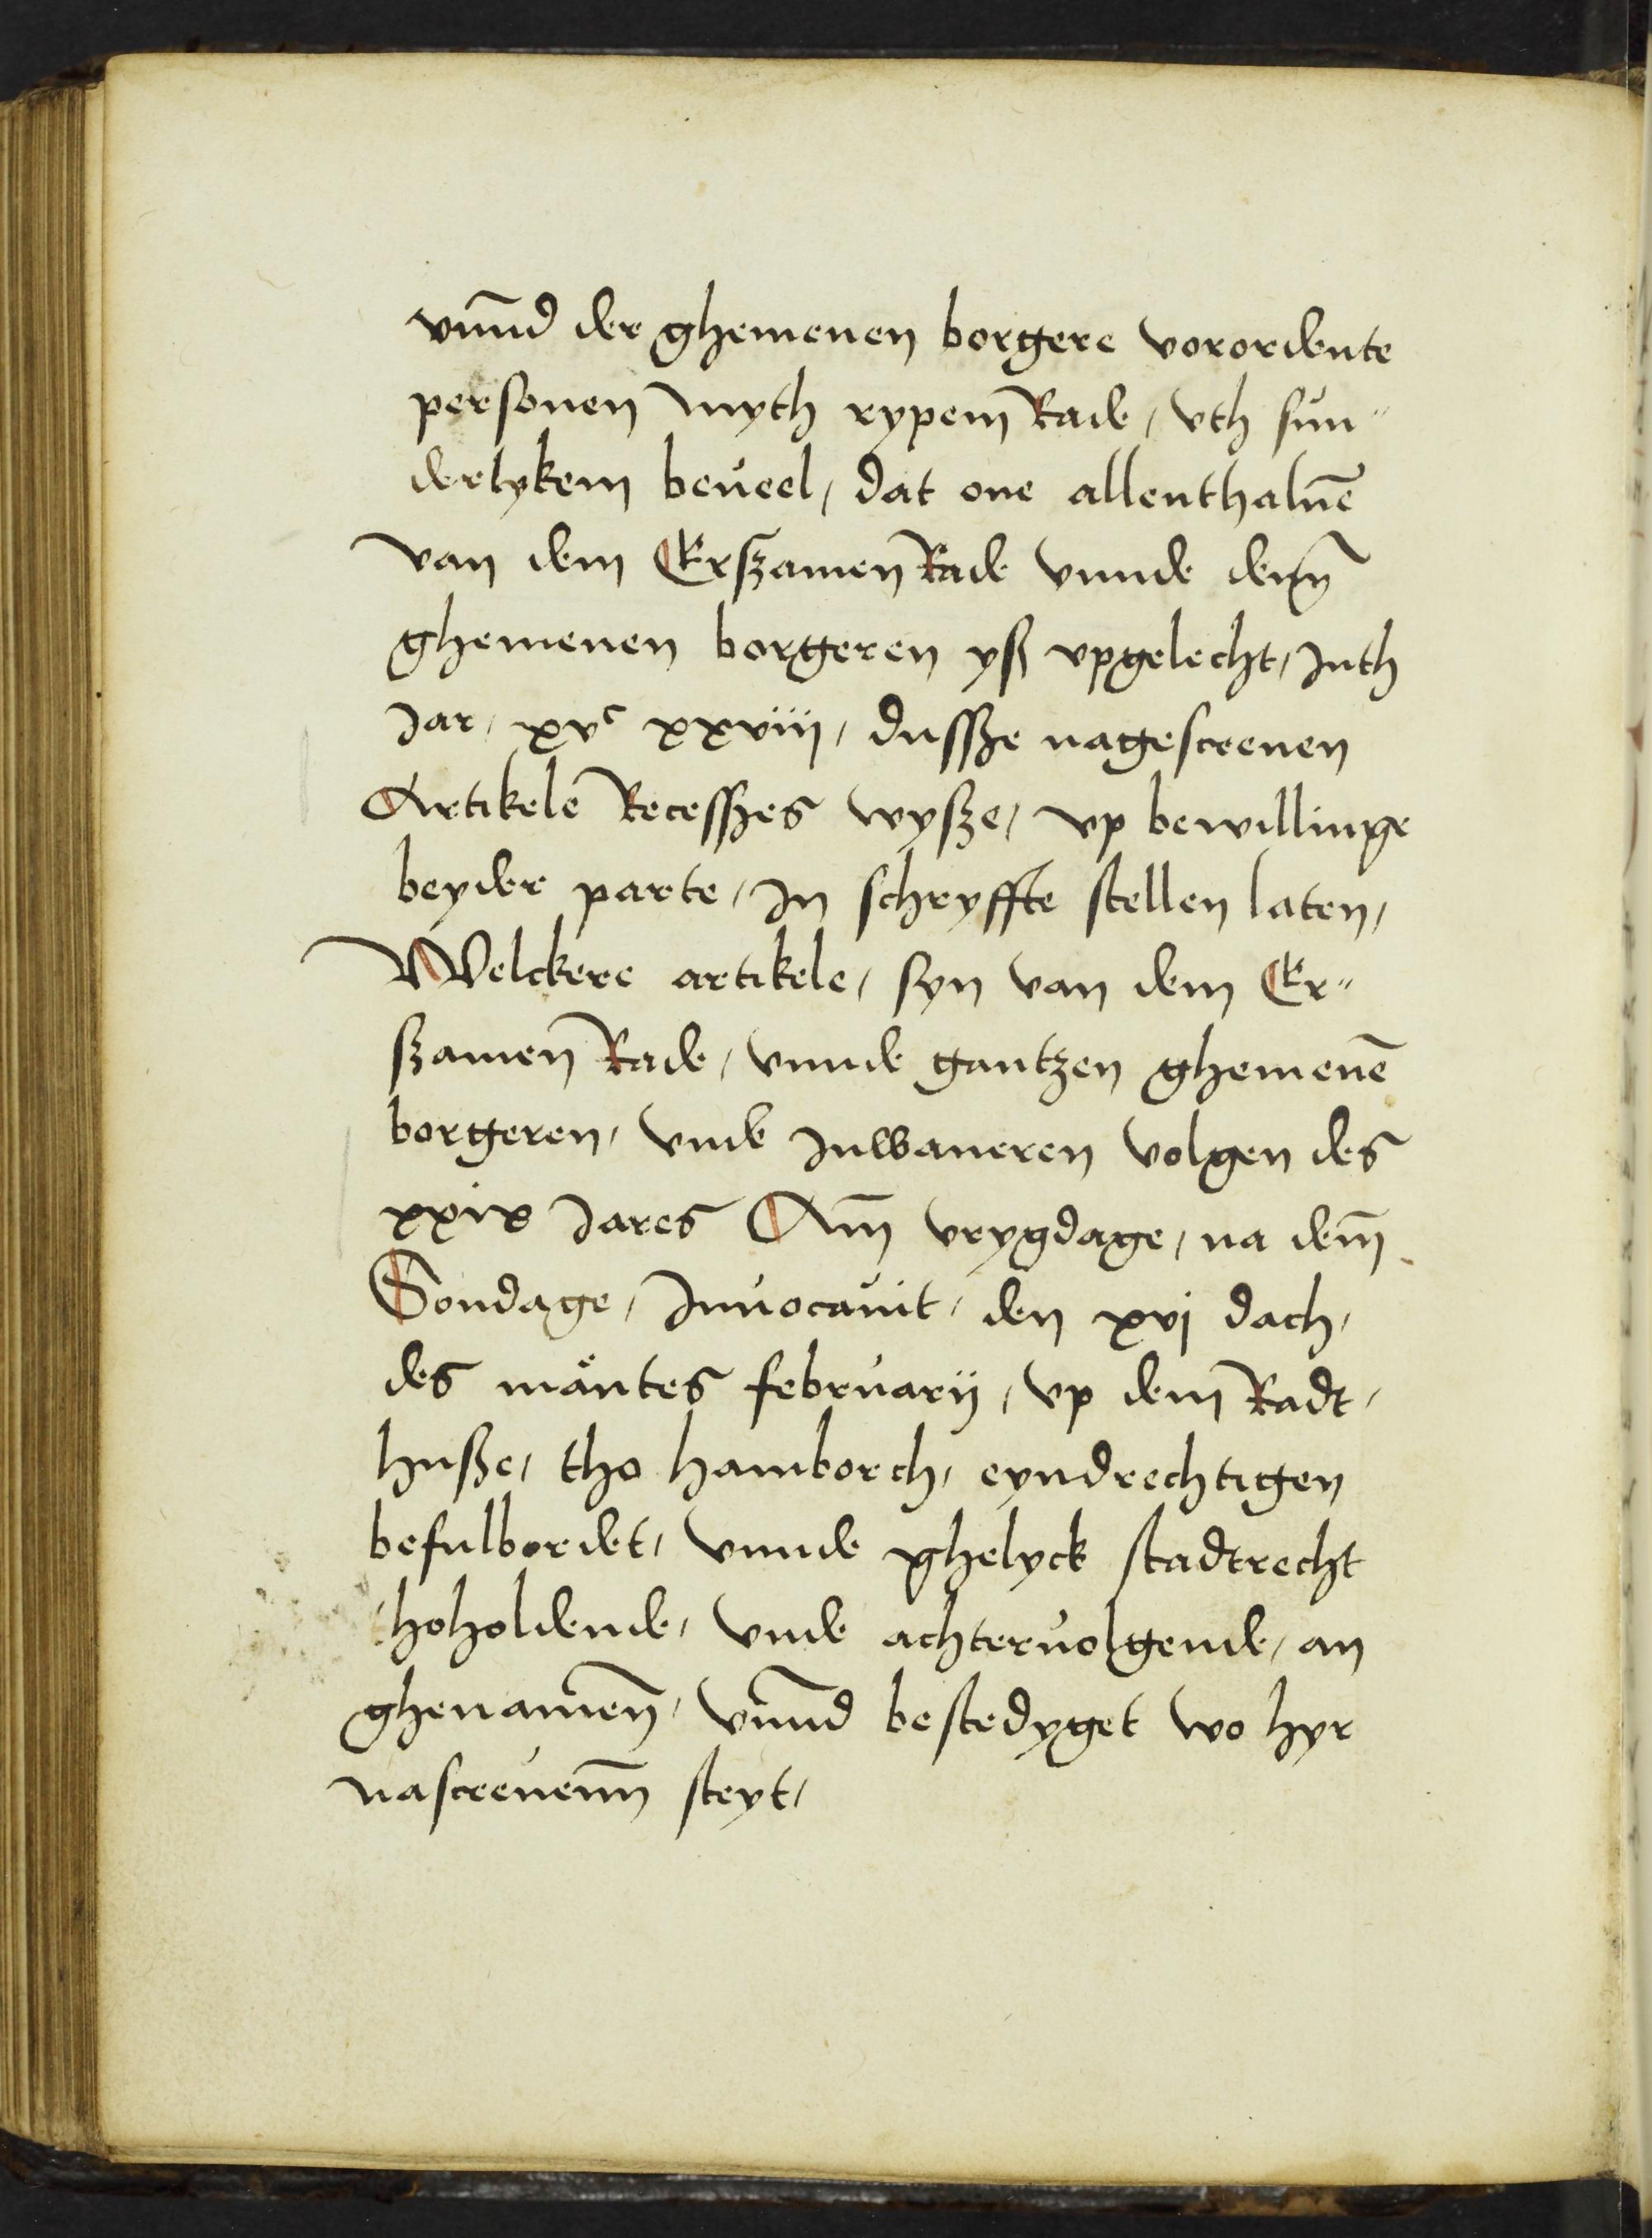 vnnd der ghemenen borgere vorordente
personen myth rypem Rade, vth sun-
derlykem beueel, dat one allenthaluē
van dem Erszamen Rade vnnde denn
ghemenen borgeren yß vpgelecht, Inth
Jar, xvᶜ xxviij, dussze nagescreuen
Artikele Recesszes wysze, vp bewillinge
beyder parte, In schryffte stellen laten,
Welckere artikele, syn van dem Er-
szamen Rade, vnnde gantzen ghemenē
borgeren, vnde Inwaneren volgen des
xxix Jares Am̄ vrygdage, na dem̄
Sondage, Inuocauit, den xvj dach,
des mäntes februarij, vp dem Radt,
husze, tho hamborch, eyndrechtigen
befulbordet, vnnde ghelyck stadtrecht
thoholdende, vnde achteruolgende, an
ghenamen̄, vnnd bestedyget wo hyr
nascreuenn̄ steyt,